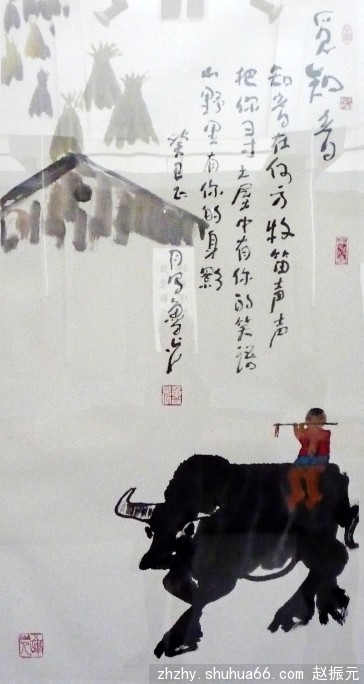 觅知音
知音在何方牧笛声声
把你寻土屋中有你的笑语
山野里有你的身影
癸巳正
月写鲁光
zhzhy.shuhua66.com 赵振元